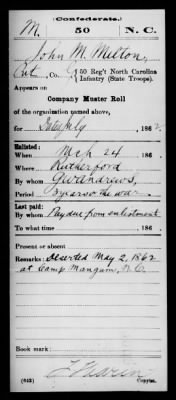 (Confederate.)
M. 50 N.C.
John M. Melton,
Pvt, Co. G, 50 Reg't North Carolina
Infantry (State Troops).
Appears on
Company Muster Roll
of the organization named above,
for July, 1862.
Enlisted:
When Mch 24, 186
Where Rutherford
By whom Andrews,
Period 3 years or the war
Last paid:
By whom Pay due from enlistment
To what time , 186
Present or absent
Remarks: Deserted May 2, 1862
at Camp Mangum, N.C.
Book mark:
(642) Copyist.